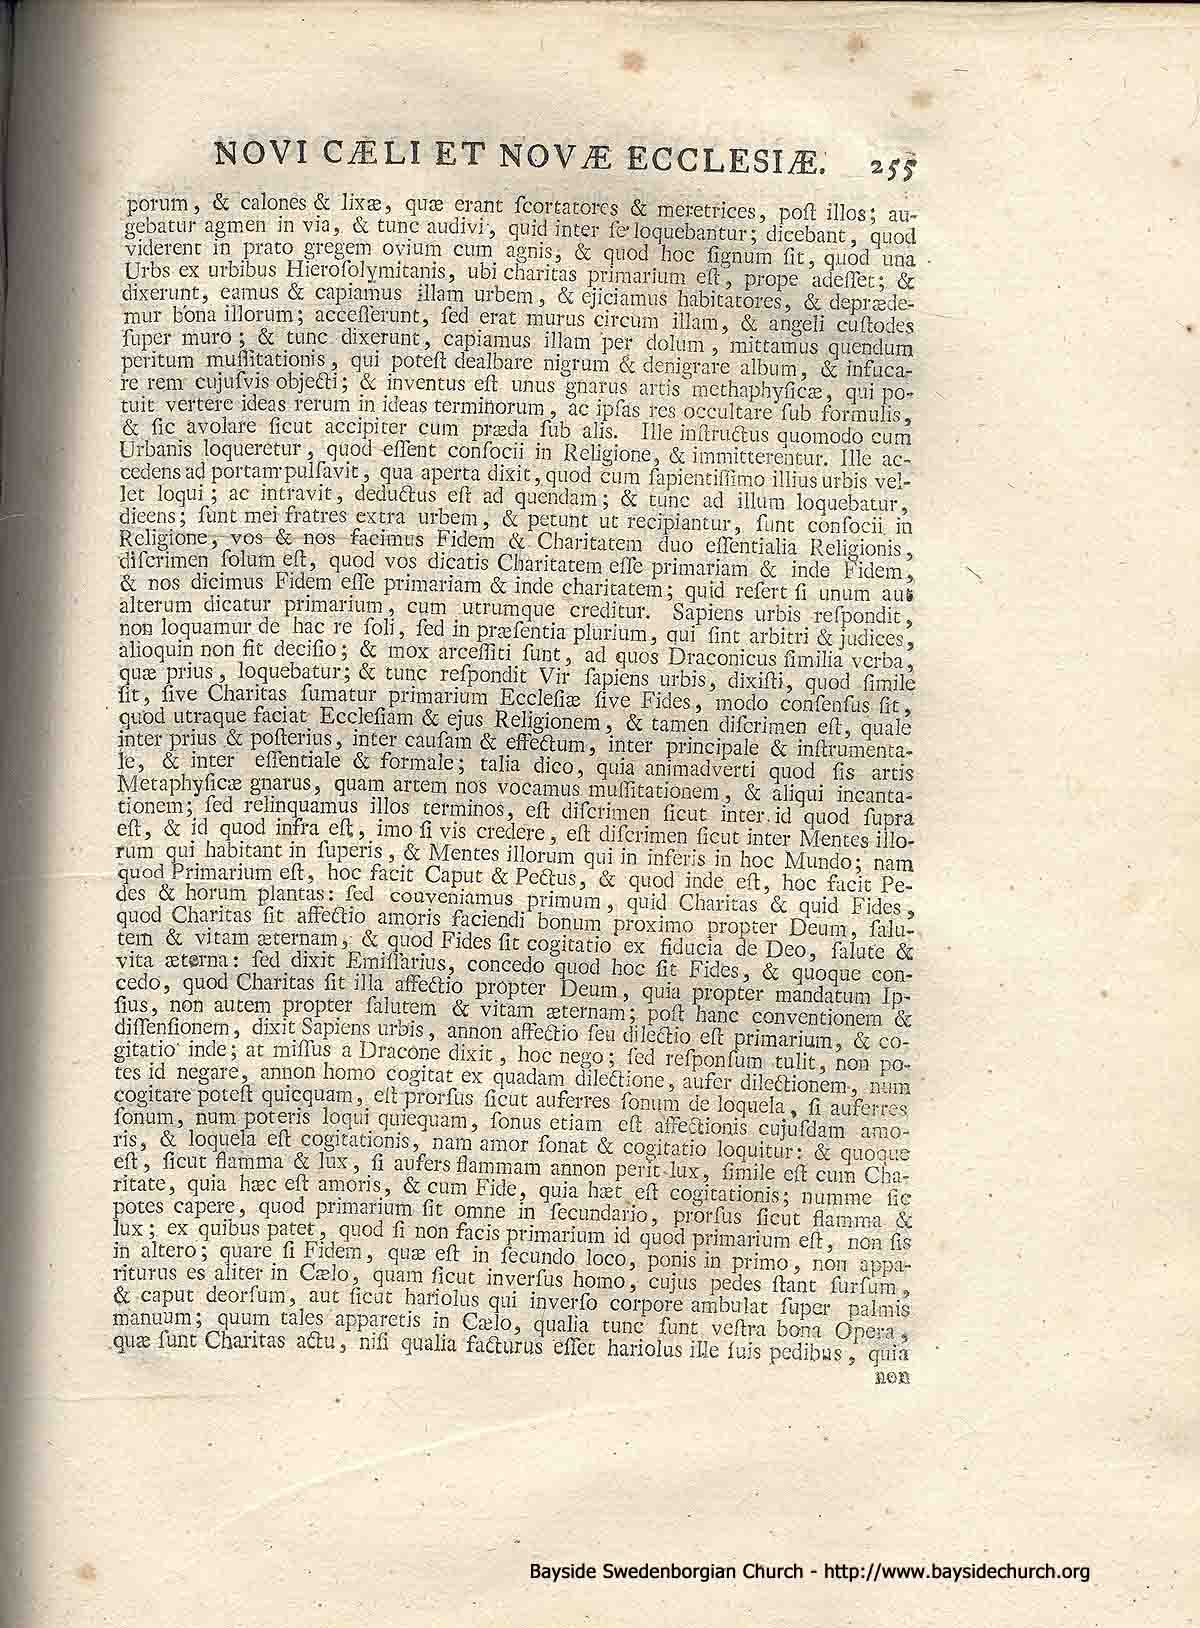 NOVI CÆLI ET NOVÆ ECCLESIÆ. 255
porum, & calones & lixæ, quæ erant ſcortatores & meretrices, poſt illos; au-
gebatur agmen in via, & tunc audivi, quid inter ſe loquebantur; dicebant, quod
viderent in prato gregem ovium cum agnis, & quod hoc ſignum ſit, quod una
Urbs ex urbibus Hieroſolymitanis, ubi charitas primarium eſt, prope adeſſet; &
dixerunt, eamus & capiamus illam urbem, & ejiciamus habitatores, & depræde-
mur bona illorum; acceſſerunt, ſed erat murus circum illam, & angeli cuſtodes
ſuper muro; & tunc dixerunt, capiamus illam per dolum, mittamus quendum
peritum muſſitationis, qui poteſt dealbare nigrum & denigrare album, & infuca-
re rem cujuſvis objecti; & inventus eſt unus gnarus artis methaphyſicæ, qui po-
tuit vertere ideas rerum in ideas terminorum, ac ipſas res occultare ſub formulis,
& ſic avolare ſicut accipiter cum præda ſub alis. Ille inſtructus quomodo cum
Urbanis loqueretur, quod eſſent conſocii in Religione, & immitterentur. Ille ac-
cedens ad portam pulſavit, qua aperta dixit, quod cum ſapientiſſimo illius urbis vel-
let loqui; ac intravit, deductus eſt ad quendam; & tunc ad illum loquebatur,
dicens; ſunt mei fratres extra urbem, & petunt ut recipiantur, ſunt conſocii in
Religione, vos & nos facimus Fidem & Charitatem duo eſſentialia Religionis,
diſcrimen ſolum eſt, quod vos dicatis Charitatem eſſe primariam & inde Fidem,
& nos dicimus Fidem eſſe primariam & inde charitatem; quid refert ſi unum aut
alterum dicatur primarium, cum utrumque creditur. Sapiens urbis reſpondit,
non loquamur de hac re ſoli, ſed in præſentia plurium, qui ſint arbitri & judices,
alioquin non fit deciſio; & mox arceſſiti ſunt, ad quos Draconicus ſimilia verba,
quæ prius, loquebatur; & tunc reſpondit Vir ſapiens urbis, dixiſti, quod ſimile
ſit, ſive Charitas ſumatur primarium Eccleſiæ ſive Fides, modo conſenſus ſit,
quod utraque faciat Eccleſiam & ejus Religionem, & tamen diſcrimen eſt, quale
inter prius & poſterius, inter cauſam & effectum, inter principale & inſtrumenta-
le, & inter eſſentiale & formale; talia dico, quia animadverti quod ſis artis
Metaphyſicæ gnarus, quam artem nos vocamus muſſitationem, & aliqui incanta-
tionem; ſed relinquamus illos terminos, eſt diſcrimen ſicut inter id quod ſupra
eſt, & id quod infra eſt, imo ſi vis credere, eſt diſcrimen ſicut inter Mentes illo-
rum qui habitant in ſuperis, & Mentes illorum qui in inferis in hoc Mundo; nam
quod Primarium eſt, hoc facit Caput & Pectus, & quod inde eſt, hoc facit Pe-
des & horum plantas: ſed conveniamus primum, quid Charitas & quid Fides,
quod Charitas ſit affectio amoris faciendi bonum proximo propter Deum, ſalu-
tem & vitam æternam, & quod Fides ſit cogitatio ex fiducia de Deo, ſalute &
vita æterna: ſed dixit Emiſſarius, concedo quod hoc ſit Fides, & quoque con-
cedo, quod Charitas ſit illa affectio propter Deum, quia propter mandatum Ip-
ſius, non autem propter ſalutem & vitam æternam; poſt hanc conventionem &
diſſenſionem, dixit Sapiens urbis, annon affectio ſeu dilectio eſt primarium, & co-
gitatio inde; at miſſus a Dracone dixit, hoc nego; ſed reſponſum tulit, non po-
tes id negare, annon homo cogitat ex quadam dilectione, aufer dilectionem, num
cogitare poteſt quicquam, eſt prorſus ſicut auferres ſonum de loquela, ſi auferres
ſonum, num poteris loqui quicquam, ſonus etiam eſt affectionis cujuſdam amo-
ris, & loquela eſt cogitationis, nam amor ſonat & cogitatio loquitur: & quoque
eſt, ſicut flamma & lux, ſi aufers flammam annon perit lux, ſimile eſt cum Cha-
ritate, quia hæc eſt amoris, & cum Fide, quia hæt eſt cogitationis; numme ſic
potes capere, quod primarium ſit omne in ſecundario, prorſus ſicut flamma &
lux; ex quibus patet, quod ſi non facis primarium id quod primarium eſt, non ſis
in altero; quare ſi Fidem, quæ eſt in ſecundo loco, ponis in primo, non appa-
riturus es aliter in Cælo, quam ſicut inverſus homo, cujus pedes ſtant ſurſum,
& caput deorſum, aut ſicut hariolus qui inverſo corpore ambulat ſuper palmis
manuum; quum tales apparetis in Cælo, qualia tunc ſunt veſtra bona Opera,
quæ ſunt Charitas actu, niſi qualia facturus eſſet hariolus ille ſuis pedibus, quia
non
Bayside Swedenborgian Church - http://www.baysidechurch.org